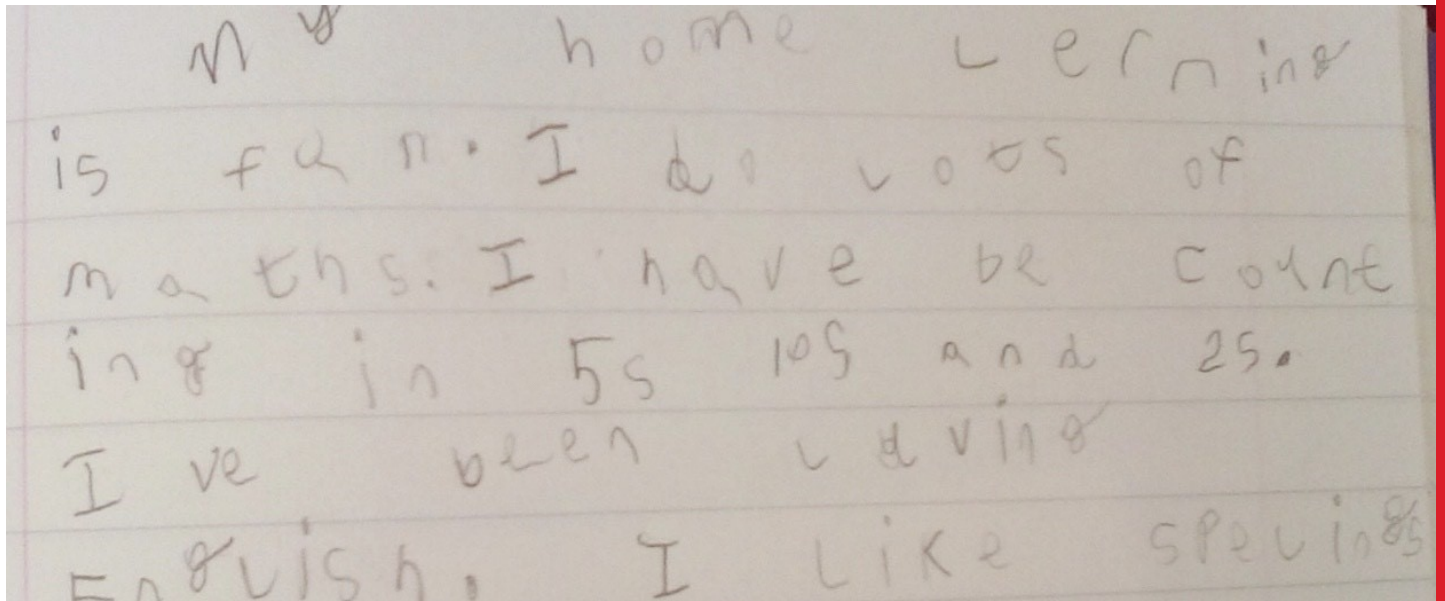 My home Lerning
is fun. I do Lots of
maths. I have be count
ing in 5s 10s and 2s.
I ve been Luving
English. I Like spelings